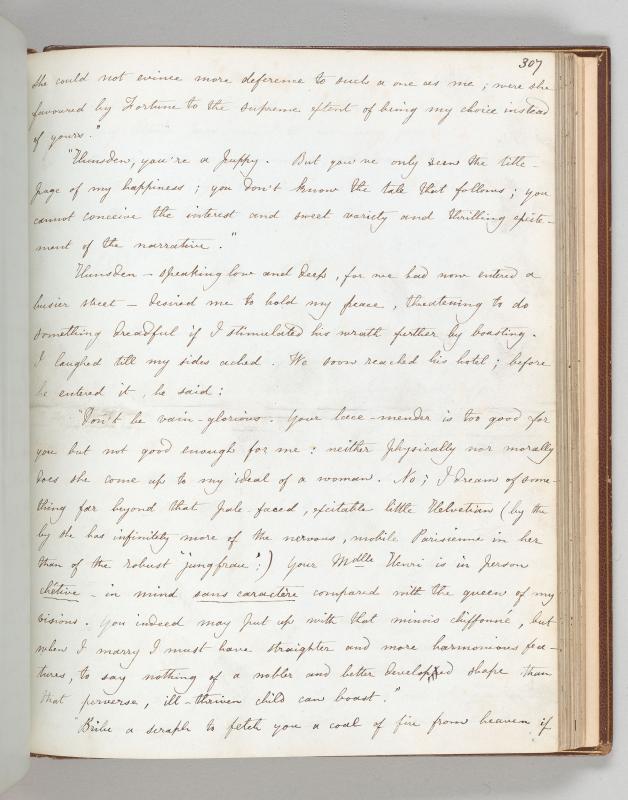 307
she could not evince more deference to such a one as me ; were she
favoured by Fortune to the supreme extent of being my choice instead
of yours."
"Hunsden, you're a puppy. But you've only seen the title-
page of my happiness ; you don't know the tale that follows ; you
cannot conceive the interest and sweet variety and thrilling excite-
ment of the narrative."
Hunsden – speaking low and deep, for we had now entered a
busier street – desired me to hold my peace, threatening to do
something dreadful if I stimulated his wrath further by boasting.
I laughed till my sides ached. We soon reached his hotel ; before
he entered it, he said :
"Don't be vain-glorious. Your lace-mender is too good for
you but not good enough for me : neither physically nor morally
does she come up to my ideal of a woman. No ; I dream of some-
thing far beyond that pale-faced, excitable little Helvetian (by the
by she has infinitely more of the nervous, mobile Parisienne in her
than of the robust "jungfrau" :) Your Mdlle Henri is in person
chétive – in mind sans caractère compared with the queen of my
visions. You indeed may put up with that minois chiffonné, but
when I marry I must have straighter and more harmonious fea-
tures, to say nothing of a nobler and better developed shape than
that perverse, ill-thriven child can boast."
"Bribe a seraph to fetch you a coal of fire from heaven if